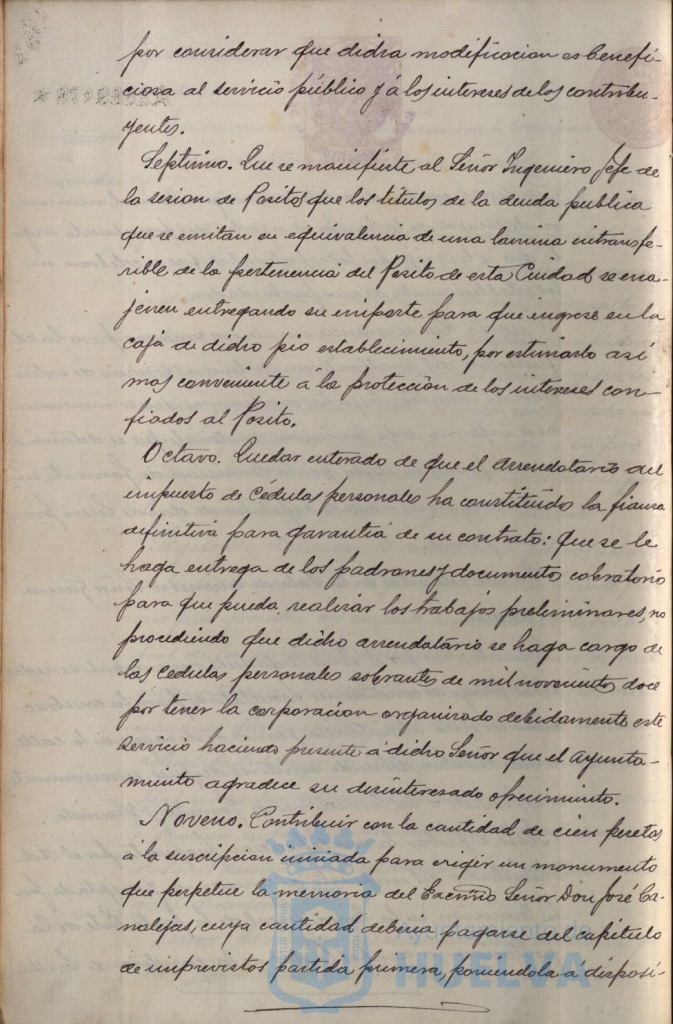 por considerar que dicha modificacion es benefi-
ciosa al servicio público y á los intereses de los contribu-
yentes.
Septimo. Que se manifieste al Señor Ingeniero Jefe de
la sesion de Positos que los titulos de la deuda publica
que se emitan en equivalencia de una lamina intransfe-
rible de la pertenencia del Posito de esta Ciudad se ena-
jenen entregando su importe para que ingrese en la
caja de dicho pio establecimiento, por estimarlo asi
mas conveniente á la protección de los intereses con-
fiados al Posito.
Octavo. Quedar enterado de que el arrendatario del
impuesto de Cédulas personales ha constituido la fianza
definitiva para garantia de su contrato: que se le
haga entrega de los padrones y documento cobratorio
para que pueda realizar los trabajos preliminares, no
procediendo que dicho arrendatario se haga cargo de
las cedulas personales sobrantes de mil novecientos doce
por tener la corporacion organizado debidamente este
servicio haciendo presente á dicho Señor que el Ayunta-
miento agradece su desinteresado ofrecimiento.
Noveno. Contribuir con la cantidad de cien pesetas
á la suscripcion iniciada para erigir un monumento
que perpetue la memoria del Excmo Señor Don José Ca-
nalejas, cuya cantidad deberia pagarse del capitulo
de imprevistos partida primera, poniendola á disposi-
HUELVA